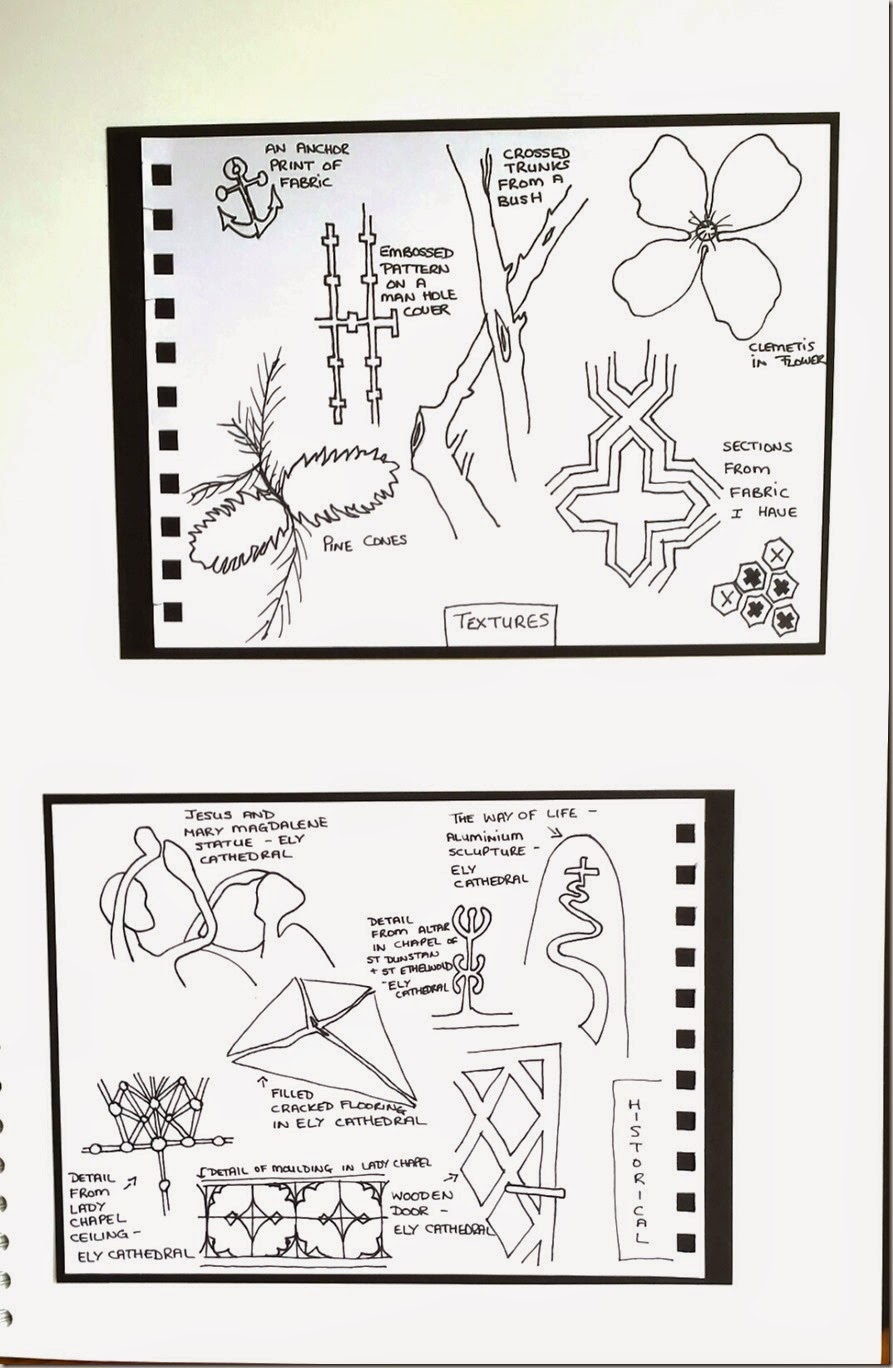 AN ANCHOR
PRINT OF
FABRIC
EMBOSSED
PATTERN
ON A
MAN HOLE
COVER
CROSSED
TRUNKS
FROM A
BUSH
CLEMETIS
IN FLOWER
PINE CONES
SECTIONS
FROM
FABRIC
I HAVE
TEXTURES
JESUS AND
MARY MAGDALENE
STATUE - ELY
CATHEDRAL
THE WAY OF LIFE -
ALUMINIUM
SCLUPTURE -
ELY
CATHEDRAL
DETAIL
FROM ALTAR
IN CHAPEL OF
ST DUNSTAN
+ ST ETHELWOLD
- ELY
CATHEDRAL
FILLED
CRACKED FLOORING
IN ELY CATHEDRAL
DETAIL
FROM
LADY
CHAPEL
CEILING -
ELY CATHEDRAL
DETAIL OF MOULDING IN LADY CHAPEL
WOODEN
DOOR -
ELY CATHEDRAL
HISTORICAL